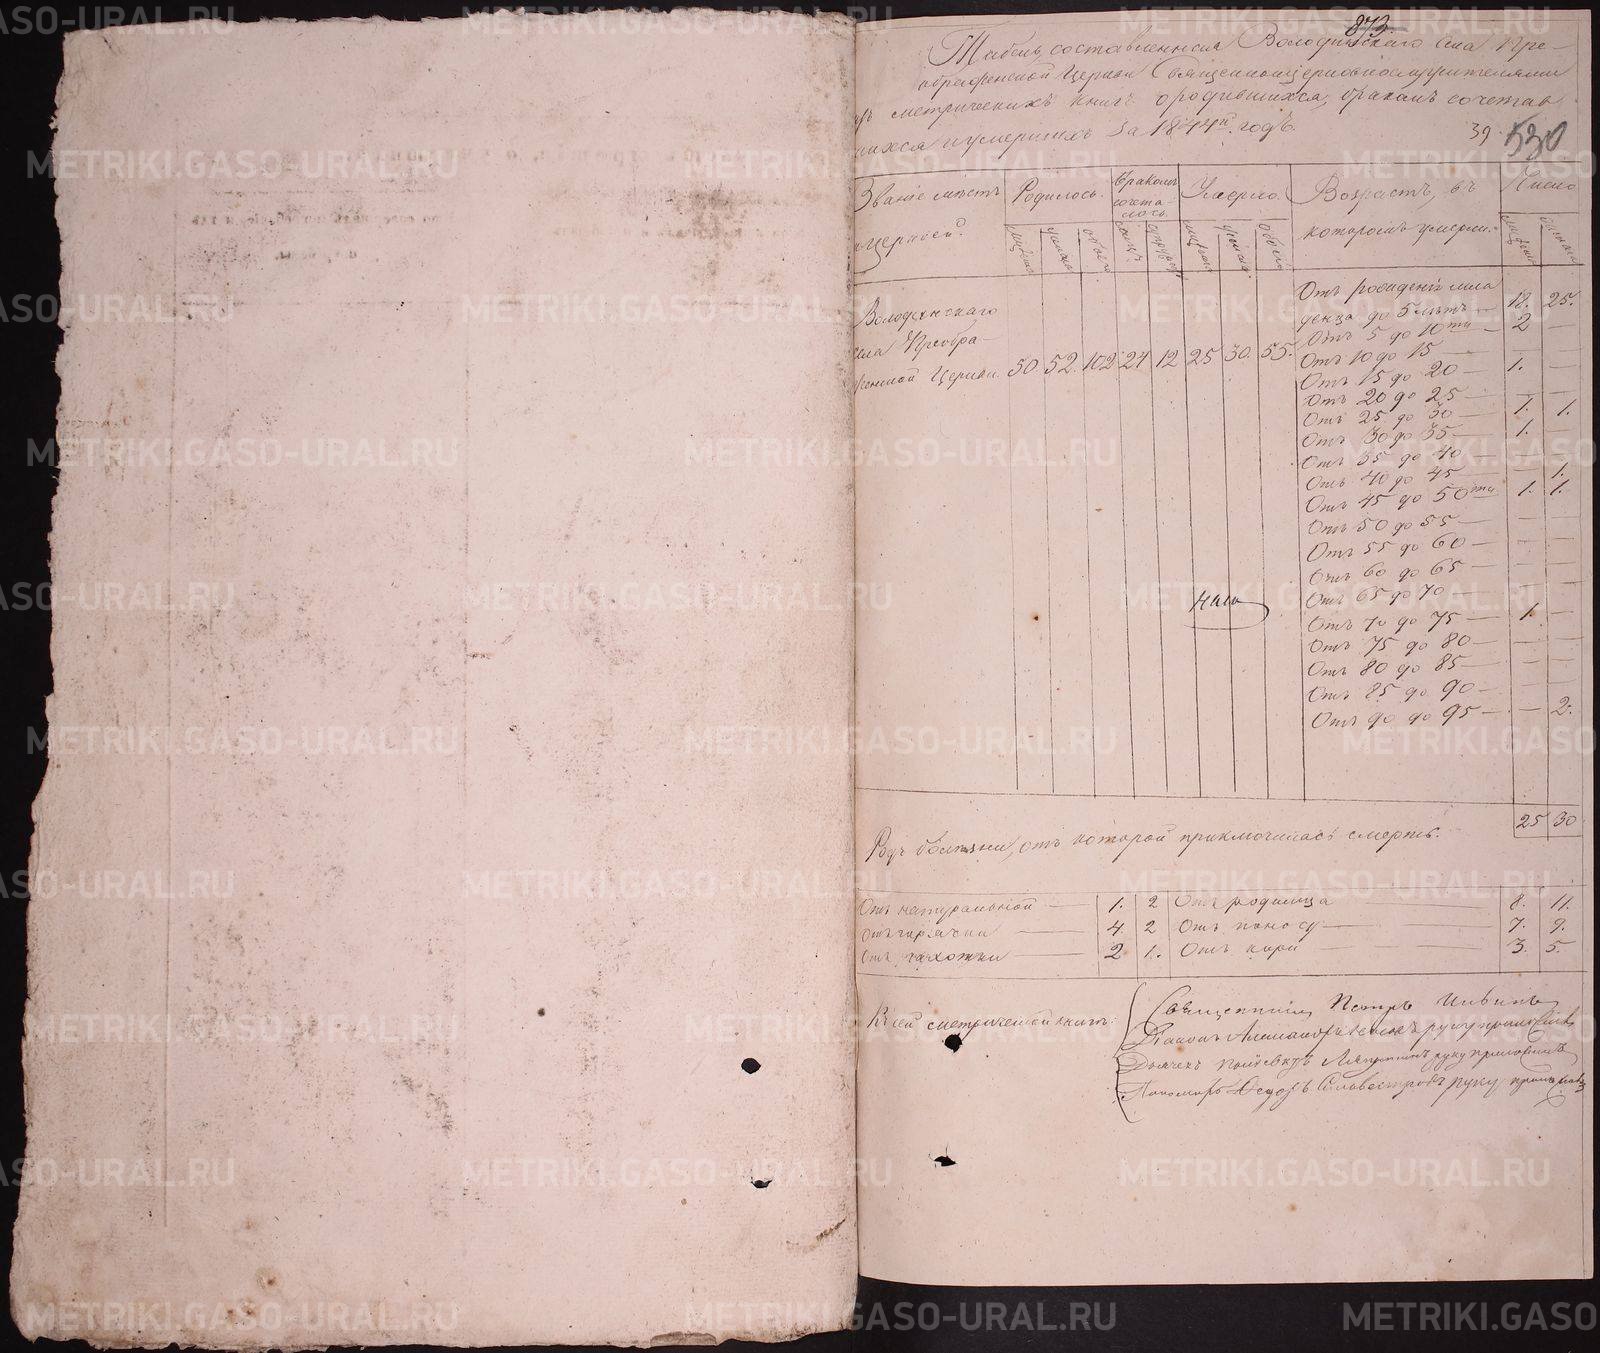 873.
Табель, составленная Володинскаго Села Пре-
ображенской Церкви Священноцерковнослужителями
изъ метрическихъ книгъ о родившихся, бракомъ сочетав
шихся и умершихъ За 1844й годъ.
39 530
Званіе мѣстъ Родилось. Бракомъ сочета-лось. Умерло. Возрастъ, въ Число
и церквей. которомъ умерли.
Отъ рожденія мла
денца до 5 лѣтъ — 18. 25.
Володинскаго Отъ 5 до 10ти — 2 —
Села Преобра- Отъ 10 до 15 — — —
женской Церкви. 50. 52. 102 24 12 25 30. 55. Отъ 15 до 20 — 1. —
Отъ 20 до 25 — — —
Отъ 25 до 30 — 1. 1.
Отъ 30 до 35 — 1. —
Отъ 35 до 40 — — —
Отъ 40 до 45 — — 1.
Отъ 45 до 50ти 1. 1.
Отъ 50 до 55 — — —
Отъ 55 до 60 — — —
Отъ 60 до 65 — — —
Отъ 65 до 70 — — —
Отъ 70 до 75 — 1. —
Отъ 75 до 80 — — —
Отъ 80 до 85 — — —
Отъ 85 до 90 — — —
Отъ 90 до 95 — — 2.
25 30
Родъ болѣзни, отъ которой приключилась смерть.
Отъ натуральной — 1. 2 Отъ родимца — 8. 11.
Отъ горячки — 4. 2 Отъ поносу — 7. 9.
Отъ чахотки — 2 1. Отъ кори — 3. 5.
Къ сей метрической книгѣ: Священникъ Петръ
Діаконъ руку приложилъ
Дьячекъ руку приложилъ
Пономарь руку приложилъ
METRIKI.GASO-URAL.RU